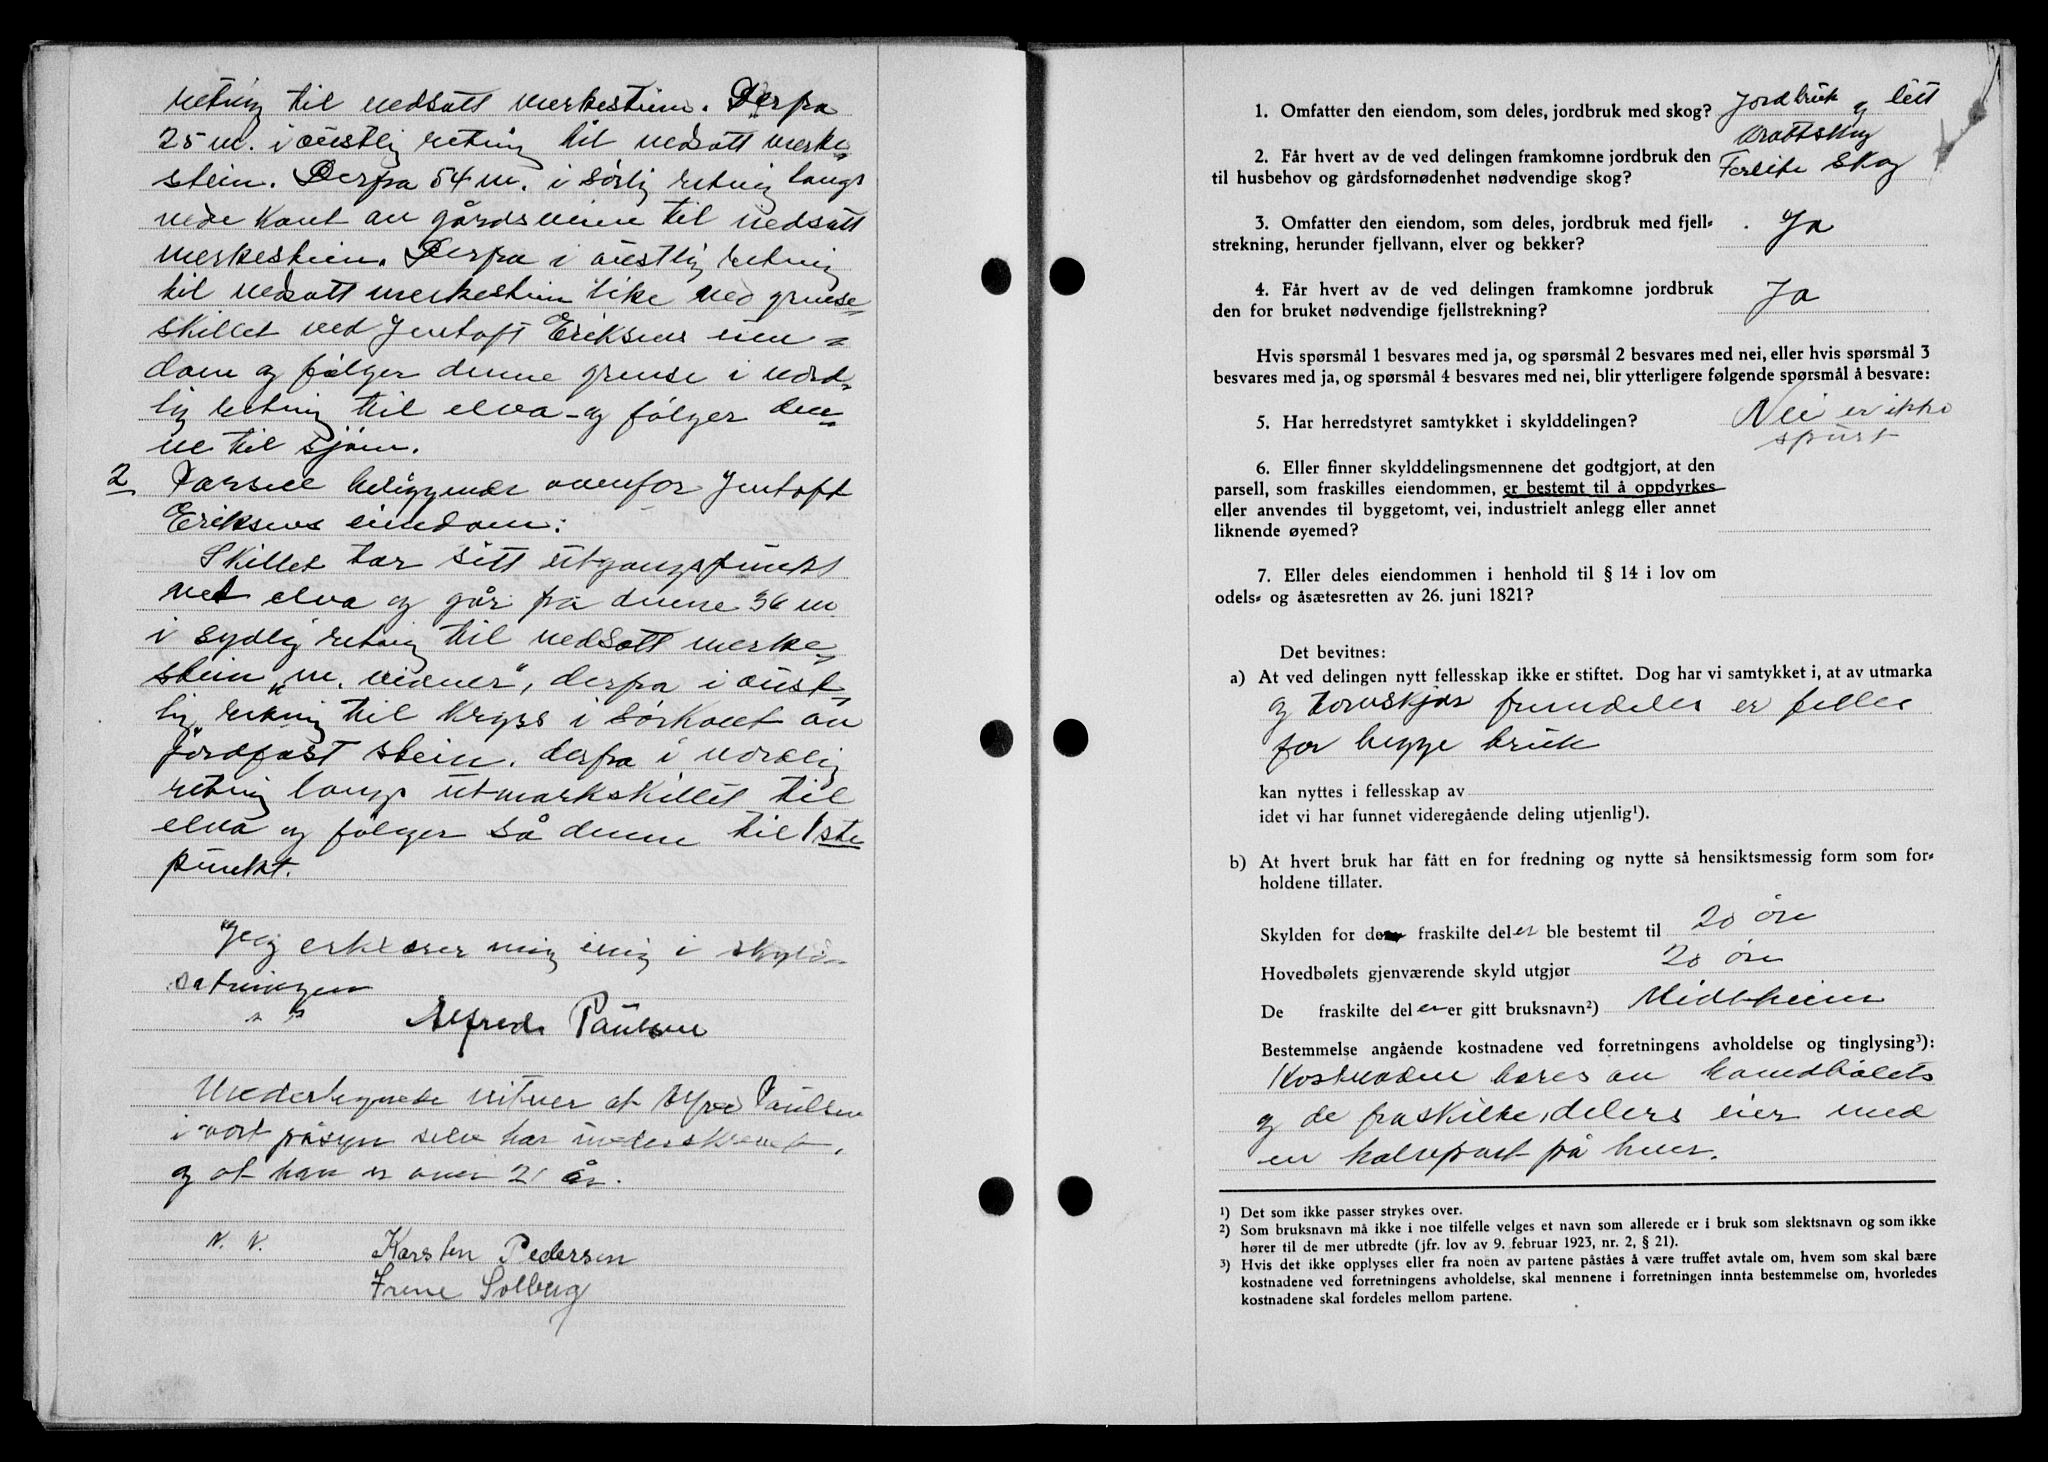 retning til nedsatt merkestein. Derfra
25 m. i austlig retning til nedsatt merke-
stein. Derfra 54 m. i sørlig retning langs
nede kant av gårdsveien til nedsatt
merkestein. Derfra i austlig retning
til nedsatt merkestein like ved grense-
skillet ved Jentoft Eriksens eien-
dom og følger denne grense i nord-
lig retning til elva - og følger den-
ne til sjøen.
2 Parsell beliggende ovenfor Jentoft
Eriksens eiendom:
Skillet tar sitt utgangspunkt
ved elva og går fra denne 36 m
i sydlig retning til nedsatt merke-
stein „m. vidner", derfra i aust-
lig retning til kryss i sørkant av
jordfast stein. derfra i nordlig
retning langs utmarkskillet til
elva og følger så denne til 1ste
punkt.
Jeg erklærer mig enig i skyld-
setningen
" " Alfred Paulsen
Undertegnede vitner at Alfred Paulsen
i vort påsyn selv har underskrevet,
og at han er over 21 år.
N. N. Karsten Pedersen
Irene Solberg
1. Omfatter den eiendom, som deles, jordbruk med skog? Jordbruk og litt
krattskog
2. Får hvert av de ved delingen framkomne jordbruk den
til husbehov og gårdsfornødenhet nødvendige skog? For lite skog
3. Omfatter den eiendom, som deles, jordbruk med fjell-
strekning, herunder fjellvann, elver og bekker? Ja
4. Får hvert av de ved delingen framkomne jordbruk
den for bruket nødvendige fjellstrekning? Ja
Hvis spørsmål 1 besvares med ja, og spørsmål 2 besvares med nei, eller hvis spørsmål 3
besvares med ja, og spørsmål 4 besvares med nei, blir ytterligere følgende spørsmål å besvare:
5. Har herredstyret samtykket i skylddelingen? Nei er ikke
spurt
6. Eller finner skylddelingsmennene det godtgjort, at den
parsell, som fraskilles eiendommen, er bestemt til å oppdyrkes
eller anvendes til byggetomt, vei, industrielt anlegg eller annet
liknende øyemed?
7. Eller deles eiendommen i henhold til § 14 i lov om
odels- og åsætesretten av 26. juni 1821?
Det bevitnes:
a) At ved delingen nytt fellesskap ikke er stiftet. Dog har vi samtykket i, at av utmarka
og torvskjær fremdeles er felles
for begge bruk
kan nyttes i fellesskap av
idet vi har funnet videregående deling utjenlig¹).
b) At hvert bruk har fått en for fredning og nytte så hensiktsmessig form som for-
holdene tillater.
Skylden for de fraskilte deler ble bestemt til 20 øre
Hovedbølets gjenværende skyld utgjør 20 øre
De fraskilte deler er gitt bruksnavn²) Midtheim
Bestemmelse angående kostnadene ved forretningens avholdelse og tinglysing³):
Kostnadene bæres av hovedbølets
og de fraskilte, delers eier med
en halvpart på hver.
¹) Det som ikke passer strykes over.
²) Som bruksnavn må ikke i noe tilfelle velges et navn som allerede er i bruk som slektsnavn og som ikke
hører til de mer utbredte (jfr. lov av 9. februar 1923, nr. 2, § 21).
³) Hvis det ikke opplyses eller fra noen av partene påståes å være truffet avtale om, hvem som skal bære
kostnadene ved forretningens avholdelse, skal mennene i forretningen innta bestemmelse om, hvorledes
kostnadene skal fordeles mellom partene.